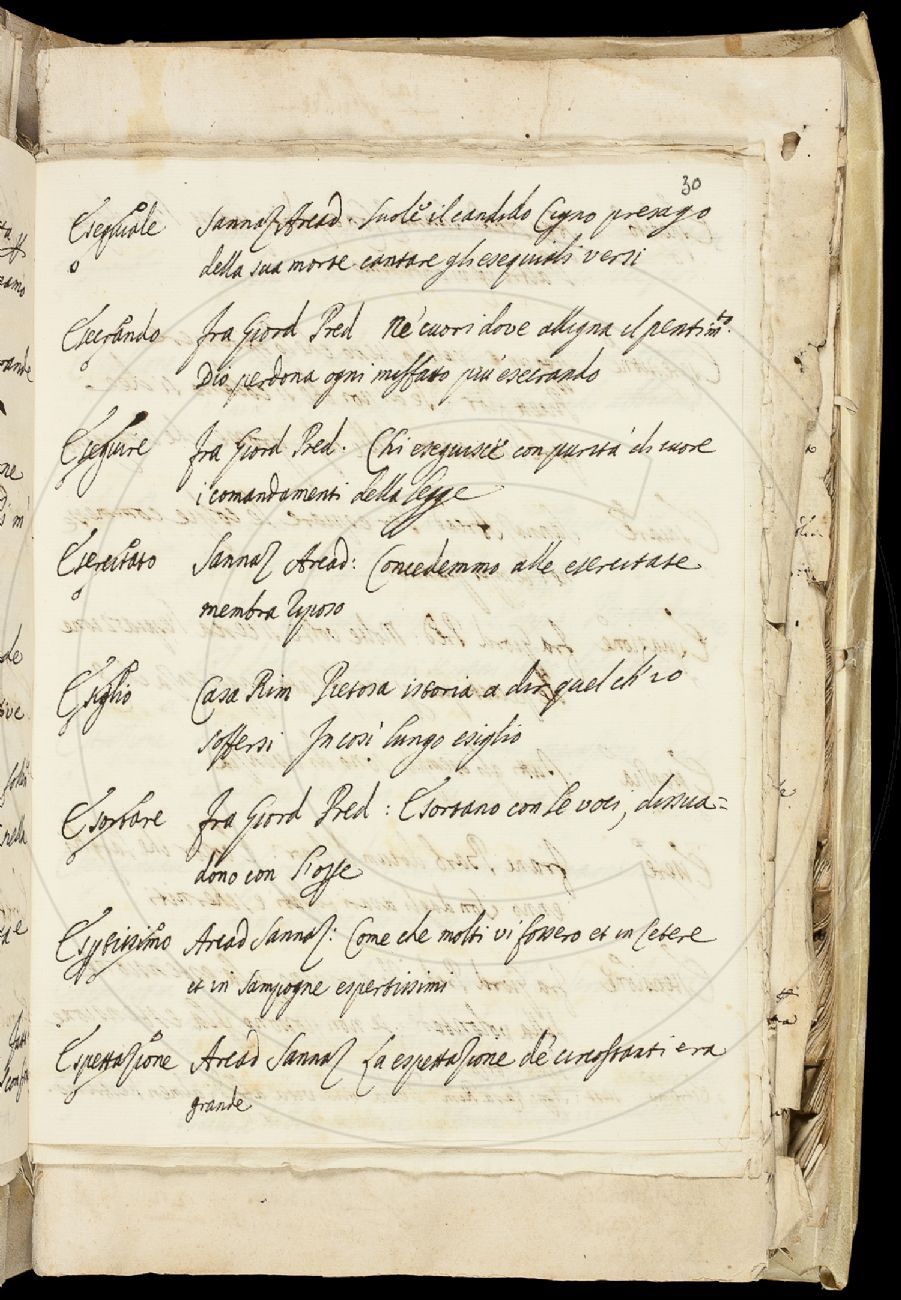 30
Esequiale Sannaz Arcad. Suole il candido Cigno presago
della sua morte cantare gli esequiali versi
Esecrando fra Giord Pred Ne' cuori dove alligna il pentim.to
Dio perdona ogni misfatto più esecrando
Eseguire fra Giord Pred. Chi eseguisce con purità di cuore
i comandamenti della legge
Esercitato Sannaz Arcad: Concedemmo alle esercitate
membra riposo
Esiglio Casa Rim Pietosa istoria a dir quel ch'io
soffersi In così lungo esiglio
Esortare fra Giord Pred: Esortano con le voci, dissua=
dono con l'opre
Espertissimo Arcad Sannaz: Come che molti vi fossero et in Cetere
et in Sampogne espertissimi
Espettazione Arcad Sannaz La espettazione de' circostanti era
grande